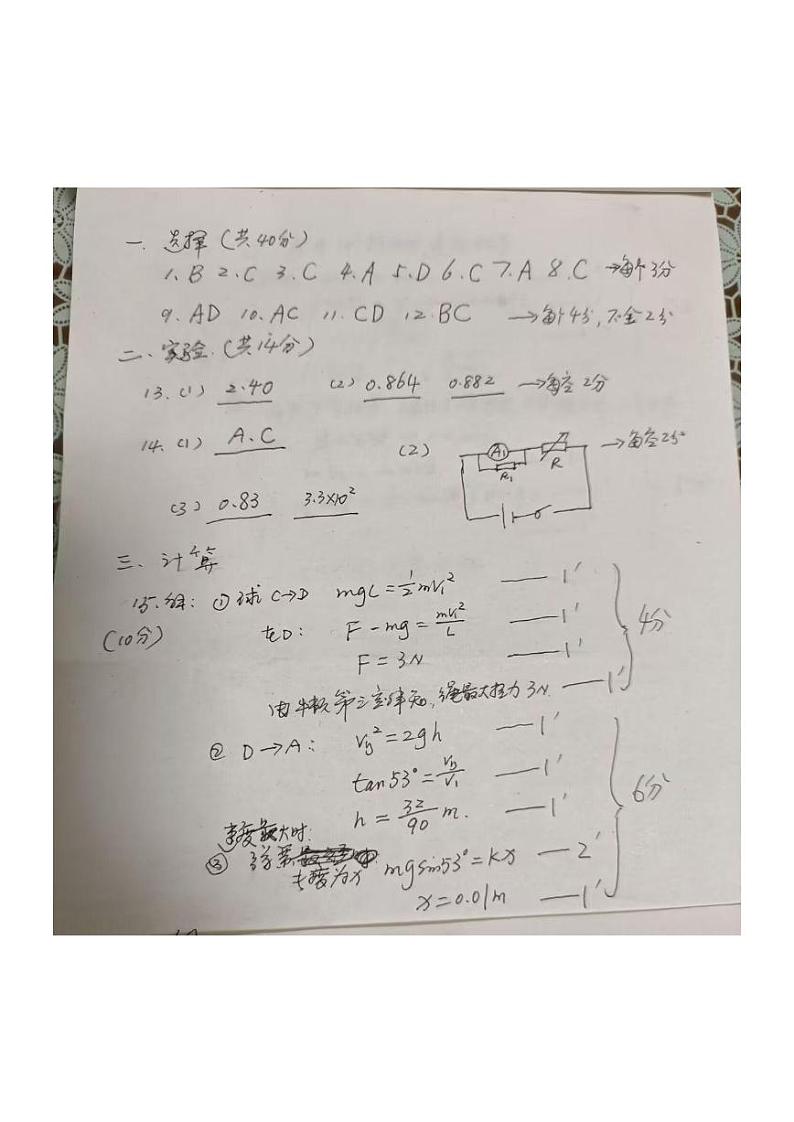 一. 选择（共40分）
1. B 2. C 3. C 4. A 5. D 6. C 7. A 8. C →每个3分
9. AD 10. AC 11. CD 12. BC →每个4分，不全2分
二、实验.（共14分）
13. (1) 2.40 (2) 0.864 0.882 →每空2分
14. (1) A、C (2) A₁ R₁ R →每空2分
(3) 0.83 3.3×10²
三、计算
15. 解: ① 球C→D mgL=½mv₁² —— 1′
(10分) 在D: F-mg=mv₁²/L —— 1′ 4分
F=3N —— 1′
由牛顿第三定律知, 绳最大拉力3N. —— 1′
② D→A: Vy²=2gh —— 1′
tan53°=Vy/V₁ —— 1′ 6分
h=32/90 m. —— 1′
速度最大时:
③ 弹簧
长度为x mgsin53°=kx —— 2′
x=0.01m —— 1′